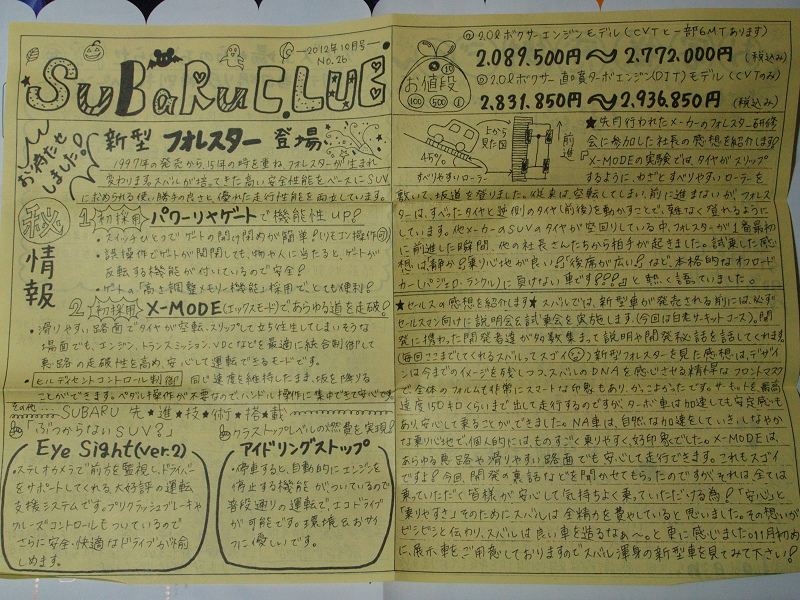 2012年10月号
NO.26
SUBARU CLUB
お待たせしました!!
新型 フォレスター 登場
1997年の発売から、15年の時を重ね、フォレスターが生まれ
変わります。スバルが培ってきた高い安全性能をベースにSUV
に求められる使い勝手の良さと、優れた走行性能を両立しています。
㊙情報
1 初採用 パワーリヤゲートで機能性UP!
・スイッチひとつでゲートの開け閉めが簡単!(リモコン操作可)
・誤操作でゲートが開閉しても、物や人に当たると、ゲートが
反転する機能が付いているので安全!
・ゲートの「高さ調整メモリー機能」採用でとても便利!
2 初採用 X-MODE(エックスモード)であらゆる道を走破!
・滑りやすい路面でタイヤが空転、スリップして立ち往生してしまいそうな
場面でも、エンジン、トランスミッション、VDCなどを最適に統合制御して
悪路の走破性を高め、安心して運転できるモードです。
・ヒルディセントコントロール制御 同じ速度を維持したまま、坂を降りる
ことができます。ペダル操作が不要なのでハンドル操作に集中できて安心です
その他
SUBARU 先★進★技★術★搭載
「ぶつからないSUV?」
Eye Sight(ver.2)
・ステレオカメラで前方を監視し、ドライバー
をサポートしてくれる、大好評の運転
支援システムです。プリクラッシュブレーキや
クルーズコントロールもついているので
さらに安全・快適なドライブが愉
しめます。
クラストップレベルの燃費を実現!
アイドリングストップ
・停車すると、自動的にエンジンを
停止する機能がついているので
普段通りの運転で、エコドライブ
が可能です。環境&おサイ
フに優しいです。
お値段
①2.0ℓボクサーエンジンモデル(CVTと一部6MTあります)
2.089.500円〜2.772.000円(税込み)
②2.0ℓボクサー直噴ターボエンジン(DIT)モデル(CVTのみ)
2.831.850円〜2.936.850円(税込み)
45%
すべりやすいローラー
上から見た図
前進
★先月行われたメーカーのフォレスター研修
会に参加した社長の感想を紹介します!
『X-MODEの実験では、タイヤがスリップ
するように、わざとすべりやすいローラーを
敷いて、坂道を登りました。従来は、空転してしまい、前に進まないが、フォレス
ターは、すべったタイヤと逆側のタイヤ(前後)を動かすことで、難なく登れるように
しています。他メーカーのSUVのタイヤが空回りしている中、フォレスターが1番最初
に前進した瞬間、他の社長さんたちから拍手が起きました。試乗した感
想は、「静か!」「乗り心地が良い!」「後席が広い!」など、本格的なオフロード
カー(パジェロ・ランクル)に負けない車です!!!』と熱く語っていました。
★セールスの感想を紹介します★スバルでは、新型車が発売される前には、必ず
セールスマン向けに説明会&試乗会を実施します。(今回は白老サーキットコース)。開
発に携わった開発者達が多数集まって説明や開発秘話を話してくれます
(毎回ここまでしてくれるスバルってスゴイ)新型フォレスターを見た感想は、デザイ
ンは今までのイメージを残しつつ、スバルのDNAを感じさせる精悍なフロントマスク
で全体のフォルムも非常にスマートな印象もあり、かっこよかったです。サーキットを、最高
速度150キロくらいまで出して走行するのですが、ターボ車は加速しても安定感も
あり、安心して乗ることができました。NA車は、自然な加速をしていき、しなやか
な乗り心地で個人的には、ものすごく乗りやすく、好印象でした。X-MODEは、
あらゆる悪路や滑りやすい路面でも安心して走行できます。これもスゴイ
です!今回、開発の裏話などを聞かせてもらったのですが、それは、全ては
乗っていただく皆様が安心して気持ちよく乗っていただける為!「安心」と
「乗りやすさ」そのためにスバルは全精力を費やしていると思いました。その想いが
ビシビシと伝わり、スバルは良い車を造るなぁ〜。と更に感じました。11月初め
に、展示車をご用意しておりますのでスバル渾身の新型車を見てみて下さい!